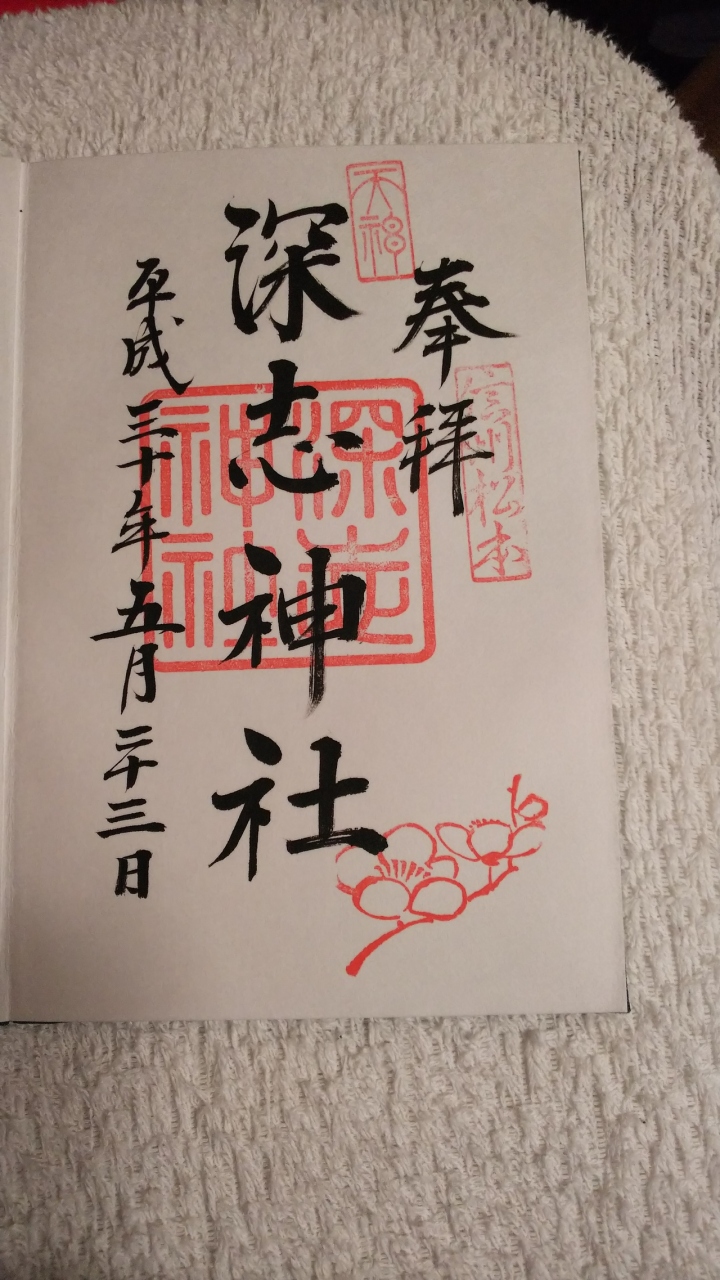 奉拝
信州松本
天神
深志神社
深志神社
平成三十年五月二十三日